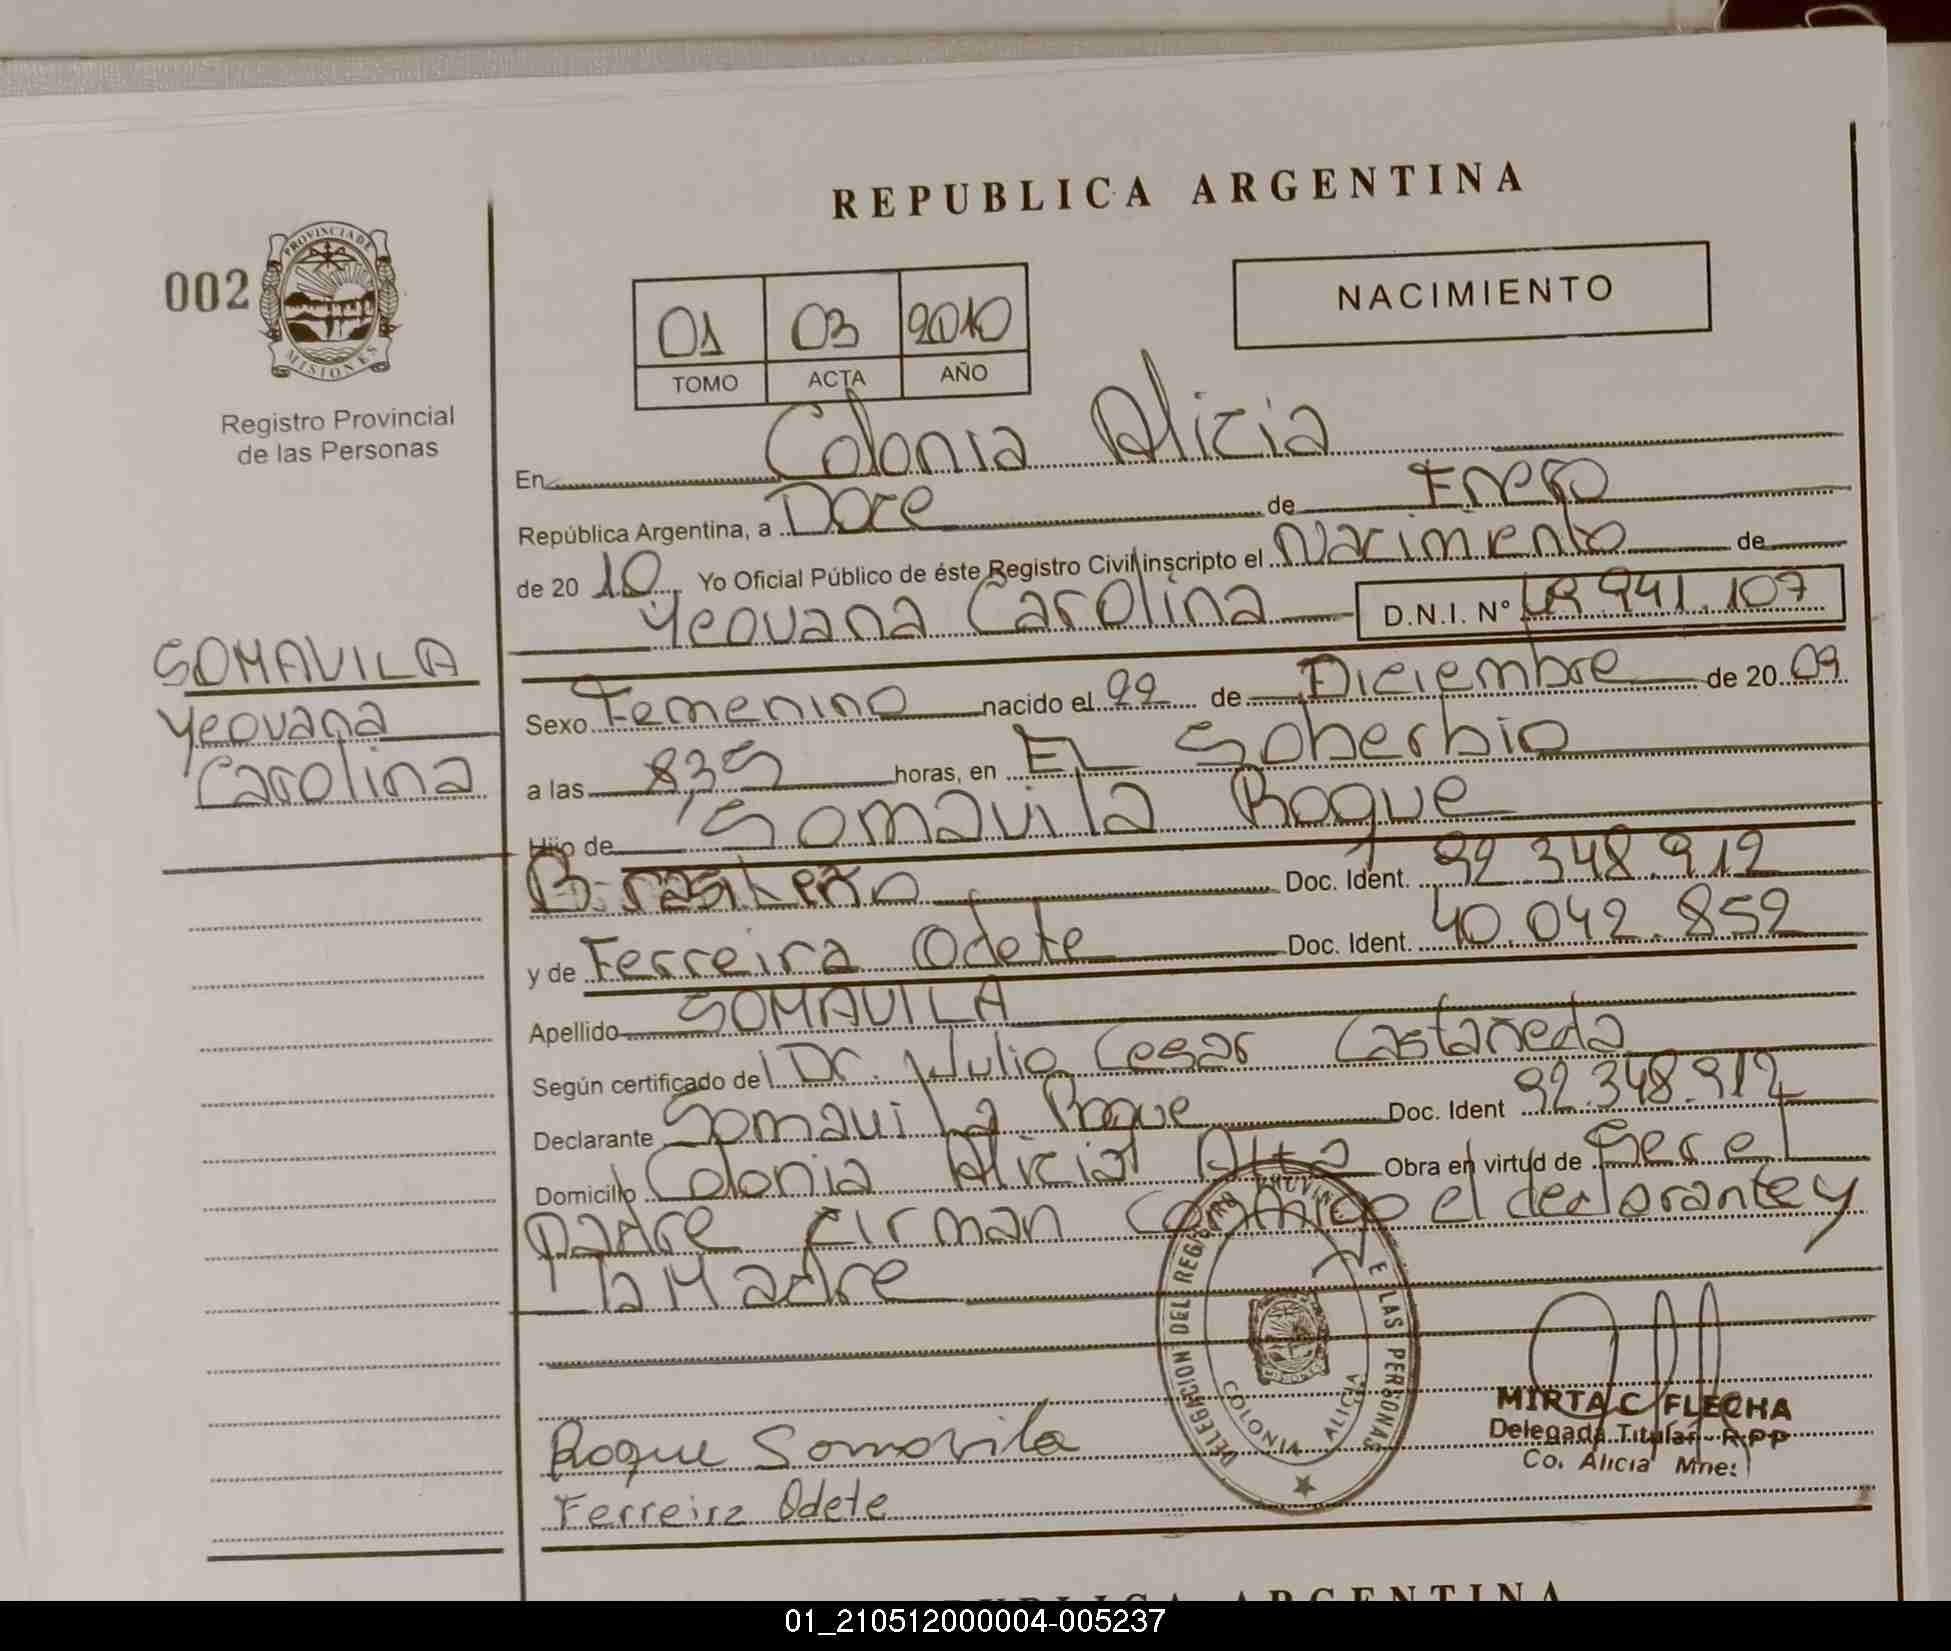 REPUBLICA ARGENTINA
002
PROVINCIA DE
MISIONES
Registro Provincial
de las Personas
NACIMIENTO
01 03 2010
TOMO ACTA AÑO
En Colonia Alicia
República Argentina, a Doce de Enero
de 20 10 Yo Oficial Público de éste Registro Civil inscripto el Nacimiento de
Yeovana Carolina D.N.I. Nº 941.107
SOMAVILA
Yeovana
Carolina
Sexo Femenino nacido el 22 de Diciembre de 20 09
a las 8,35 horas, en EL Soberbio
Hijo de Somavila Roque
Brasilero Doc. Ident. 92.348.912
y de Ferreira Odete Doc. Ident. 40.042.852
Apellido SOMAVILA
Según certificado del Dr. Julio Cesar Castañeda
Declarante Somavila Roque Doc. Ident 92.348.912
Domicilio Colonia Alicia Alta Obra en virtud de Ser el
padre Firman conmigo el declarante y
la Madre
DELEGACION DEL REGISTRO PROVINCIAL DE LAS PERSONAS
COLONIA ALICIA
MIRTA C FLECHA
Delegada Titular R.PP
Co. Alicia Mnes
Roque Somavila
Ferreira Odete
REPUBLICA ARGENTINA
01_210512000004-005237